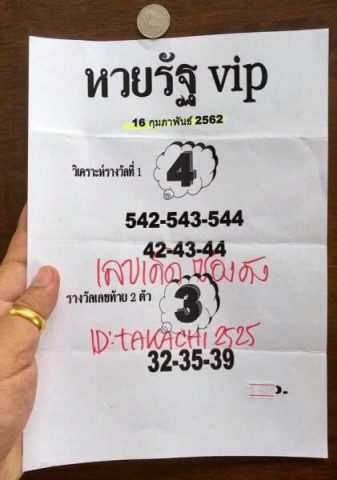 หวยรัฐ vip
16 กุมภาพันธ์ 2562
วิเคราะห์รางวัลที่ 1
4
542-543-544
42-43-44
เลขเด็ด ซองดัง
รางวัลเลขท้าย 2 ตัว
3
ID:TAKACHI 2525
32-35-39